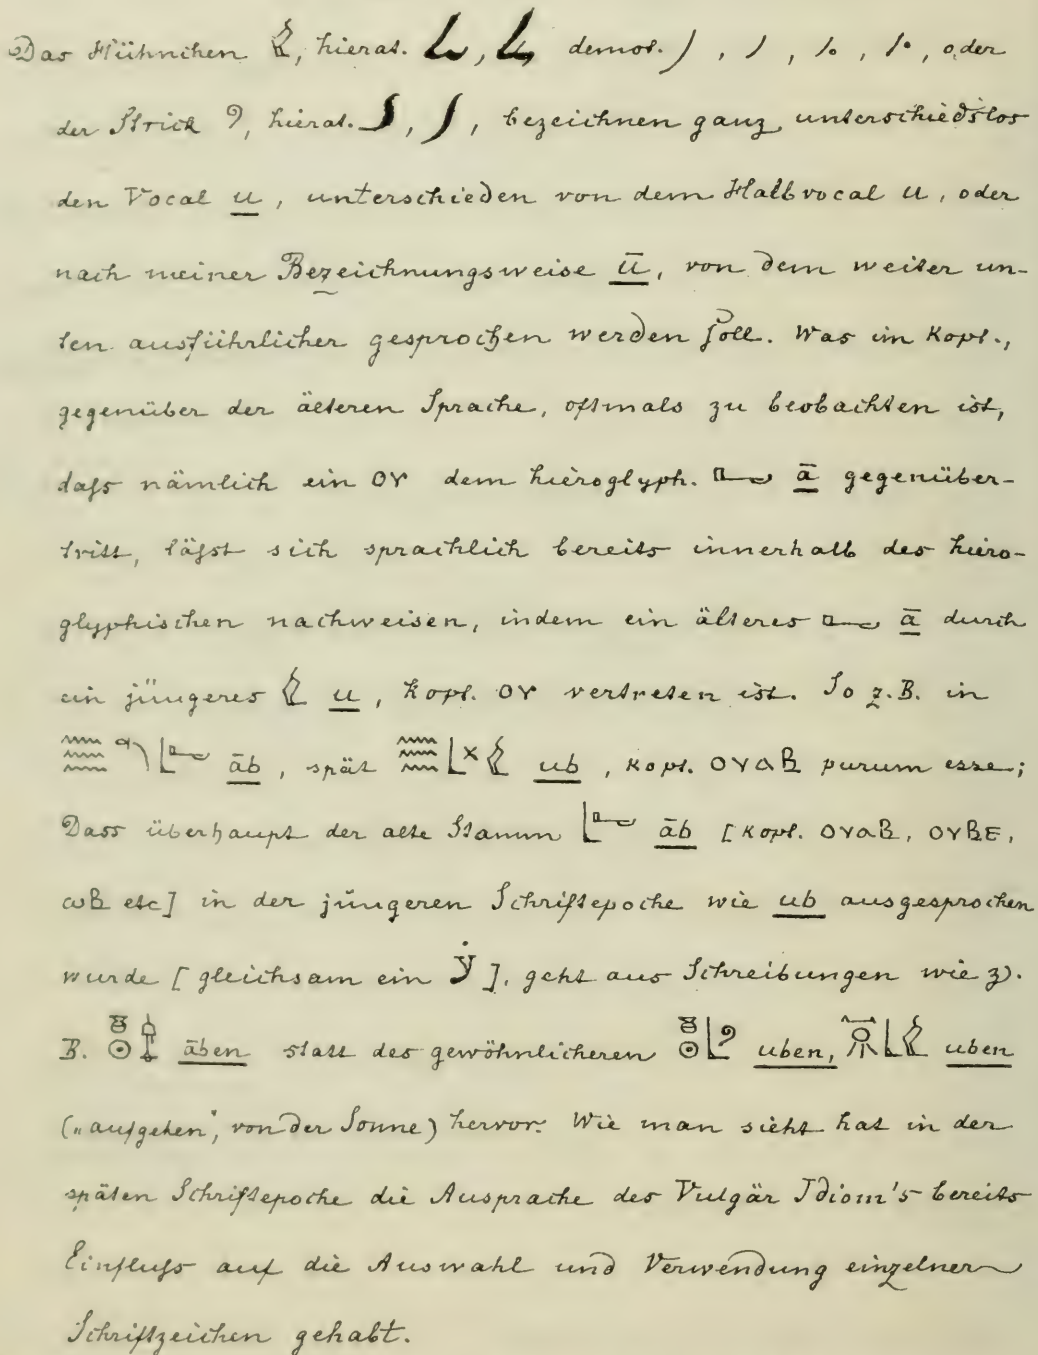 Das Hühnchen 𓅱, hierat. , demot. , oder
der Strick 𓏲, hierat. , bezeichnen ganz unterschiedslos
den Vocal u, unterschieden von dem Halbvocal u, oder
nach meiner Bezeichnungsweise ū, von dem weiter un-
ten ausführlicher gesprochen werden soll. Was im Kopt.,
gegenüber der älteren Sprache, oftmals zu beobachten ist,
daſs nämlich ein ⲟⲩ dem hieroglyph. 𓂝 ā gegenüber-
tritt, läſst sich sprachlich bereits innerhalb des hiero-
glyphischen nachweisen, indem ein älteres 𓂝 ā durch
ein jüngeres 𓅱 u, kopt. ⲟⲩ vertreten ist. So z.B. in
𓈗 𓃀𓂝 āb, spät 𓈗𓃀𓏴𓅱 ub, kopt. ⲟⲩⲁⲃ purum esse;
Dass überhaupt der alte Stamm 𓃀𓂝 āb [kopt. ⲟⲩⲁⲃ, ⲟⲩⲃⲉ,
ⲱⲃ etc] in der jüngeren Schriftepoche wie ub ausgesprochen
wurde [gleichsam ein ẏ], geht aus Schreibungen wie z.
B. āben statt des gewöhnlicheren 𓏌𓇳𓃀𓏲 uben, 𓃀𓅱 uben
(„aufgehen", von der Sonne) hervor. Wie man sieht hat in der
späten Schriftepoche die Ausprache des Vulgär Idiom's bereits
Einfluſs auf die Auswahl und Verwendung einzelner
Schriftzeichen gehabt.